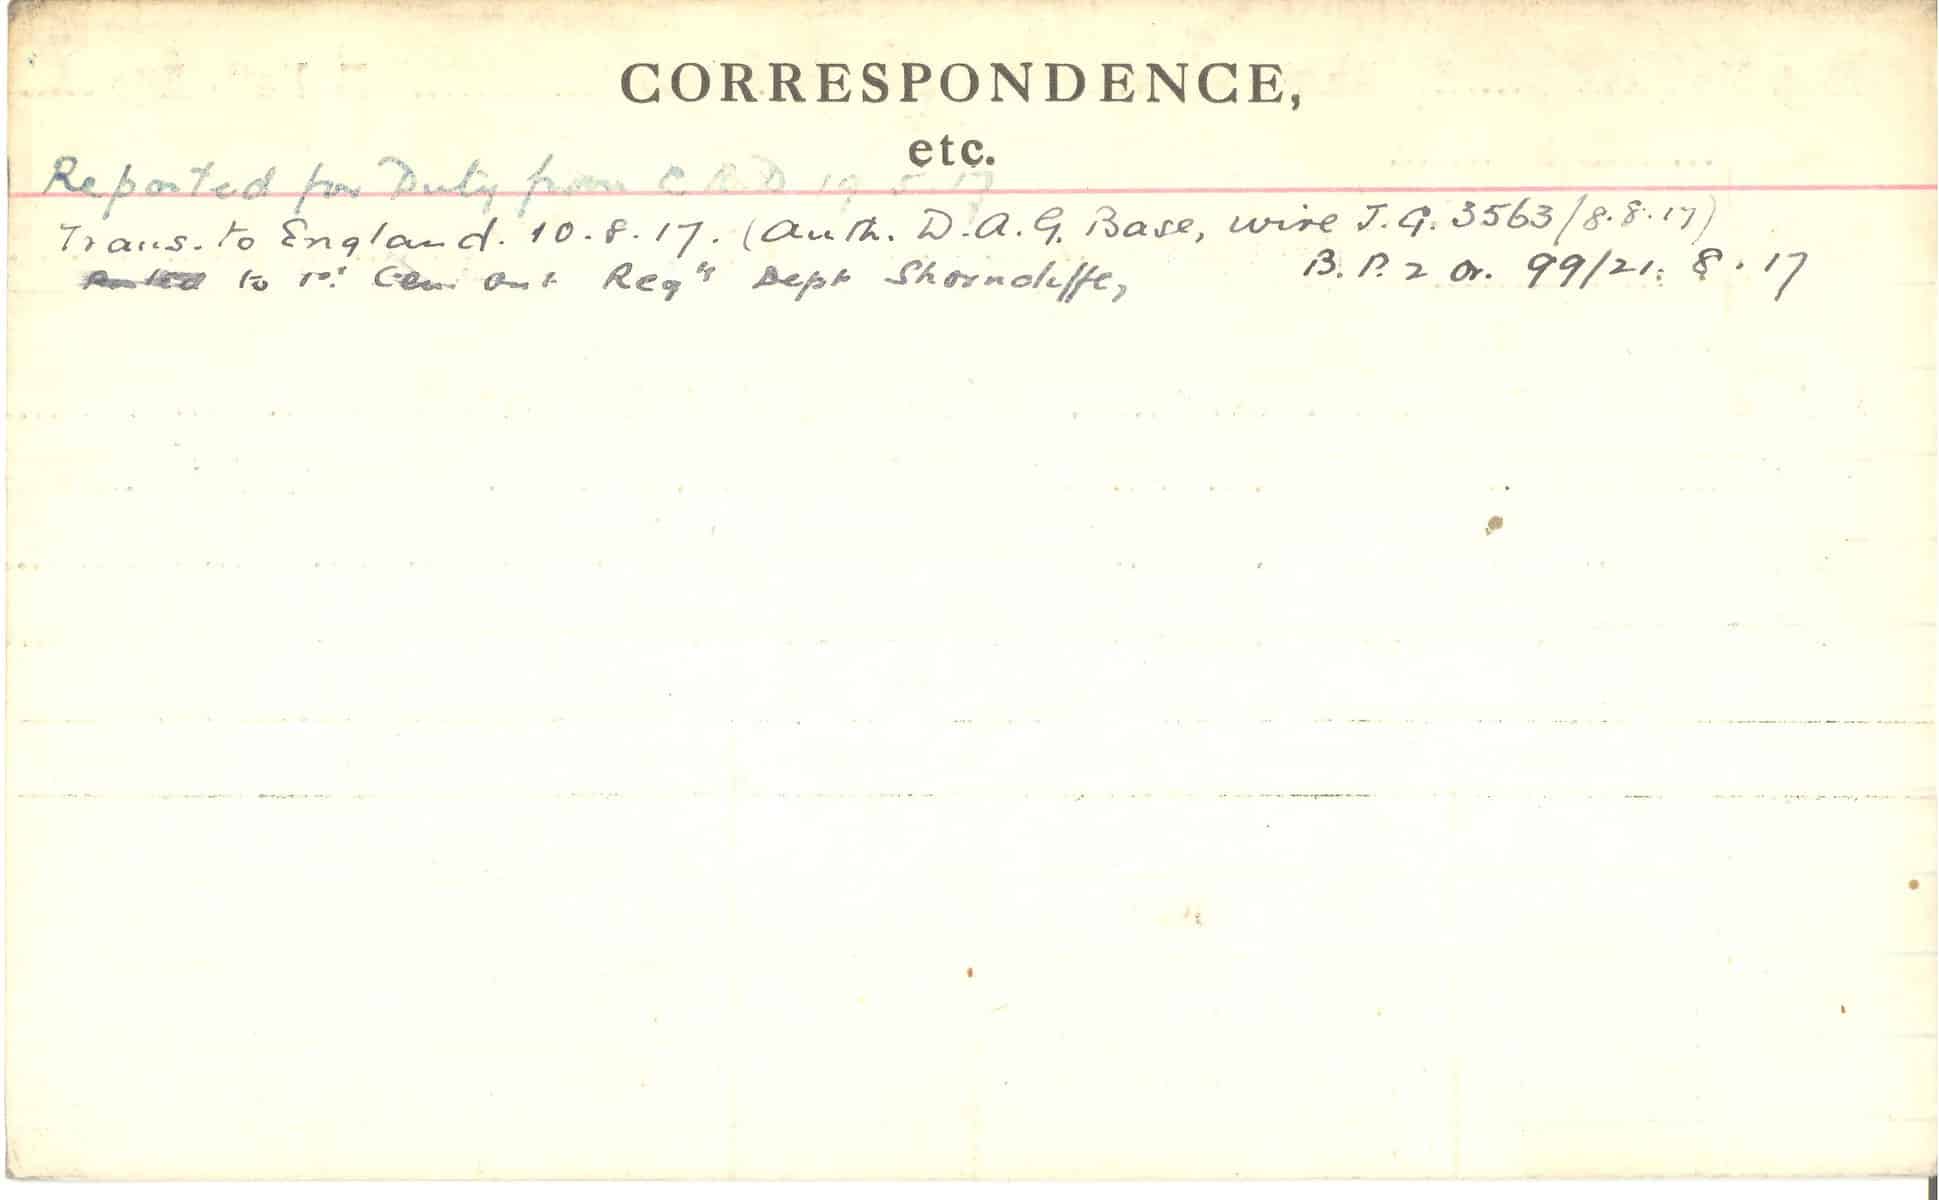 CORRESPONDENCE,
etc.
Reported for Duty from C.B.D 19.5.17
Trans. to England. 10.8.17. (Auth. D.A.G. Base, wire J.G. 3563/8.8.17)
to 1st Cen Ont Reg'l Dept Shorncliffe, B.P. 2 Or. 99/21.8.17